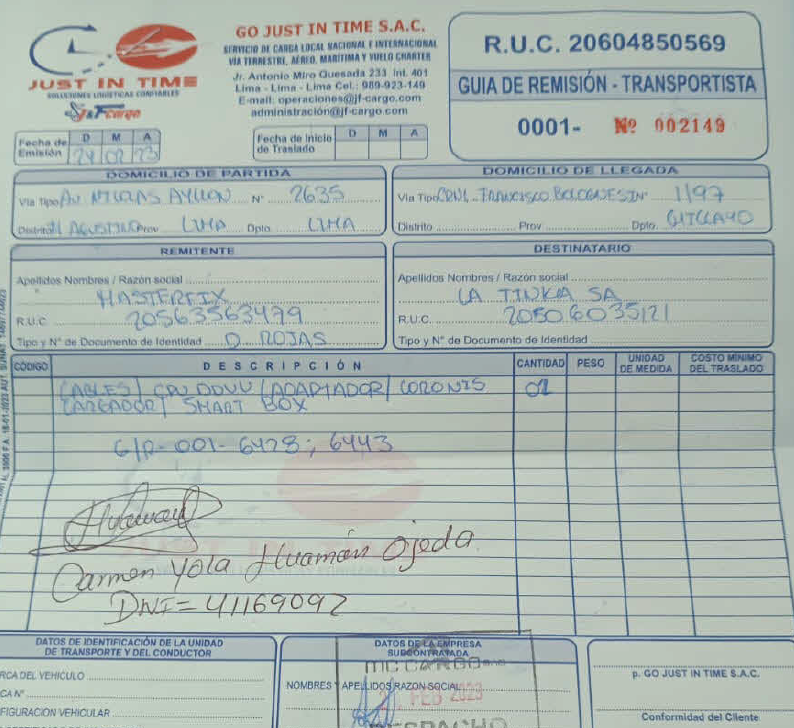 JUST IN TIME
SOLUCIONES LOGISTICAS CONFIABLES
J&F Cargo
GO JUST IN TIME S.A.C.
SERVICIO DE CARGA LOCAL NACIONAL E INTERNACIONAL
VIA TERRESTRE, AEREO, MARITIMA Y VUELO CHARTER
Jr. Antonio Miro Quesada 233 Int. 401
Lima - Lima - Lima Cel.: 989-923-149
E-mail: operaciones@jf-cargo.com
administración@jf-cargo.com
R.U.C. 20604850569
GUIA DE REMISIÓN - TRANSPORTISTA
0001- Nº 002149
Fecha de Emisión D M A
24 02 23
Fecha de Inicio de Traslado D M A
DOMICILIO DE PARTIDA
Via Tipo Av. NICOLAS AYLLON N° 2635
Distrito El AGUSTINO Prov. LIMA Dpto. LIMA
DOMICILIO DE LLEGADA
Via Tipo CRNL. FRANCISCO BOLOGNESI N° 1197
Distrito Prov. Dpto.
REMITENTE
Apellidos Nombres / Razón social
MASTERFIX
R.U.C. 20563563479
Tipo y N° de Documento de Identidad D. ROJAS
DESTINATARIO
Apellidos Nombres / Razón social
LA TINKA SA
R.U.C. 20506035121
Tipo y N° de Documento de Identidad
CÓDIGO DESCRIPCIÓN CANTIDAD PESO UNIDAD DE MEDIDA COSTO MINIMO DEL TRASLADO
CABLES / CPU / ADAPTADOR / CORONIS 01
CARGADOR / SMART BOX
G/R-001-6428; 6443
Carmen Yola Huamán Ojeda
DNI = 41169092
DATOS DE IDENTIFICACIÓN DE LA UNIDAD
DE TRANSPORTE Y DEL CONDUCTOR
RCA DEL VEHICULO
CA N°
FIGURACIÓN VEHICULAR
DATOS DE LA EMPRESA
SUBCONTRATADA
NOMBRES Y APELLIDOS RAZON SOCIAL
FEB 2023
p. GO JUST IN TIME S.A.C.
Conformidad del Cliente